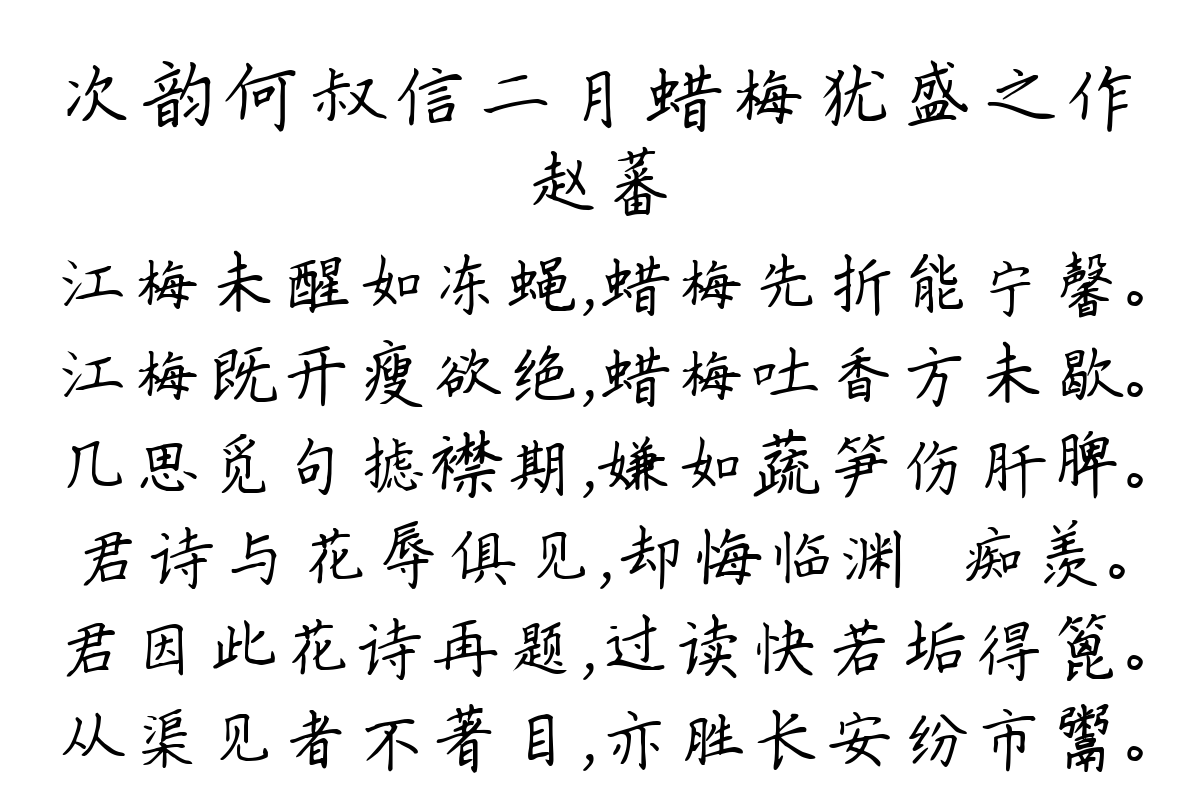 次韵何叔信二月蜡梅犹盛之作
赵蕃
江梅未醒如冻蝇,蜡梅先折能宁馨。
江梅既开瘦欲绝,蜡梅吐香方未歇。
几思觅句摅襟期,嫌如蔬笋伤肝脾。
君诗与花辱俱见,却悔临渊 痴羡。
君因此花诗再题,过读快若垢得篦。
从渠见者不著目,亦胜长安纷市鬻。